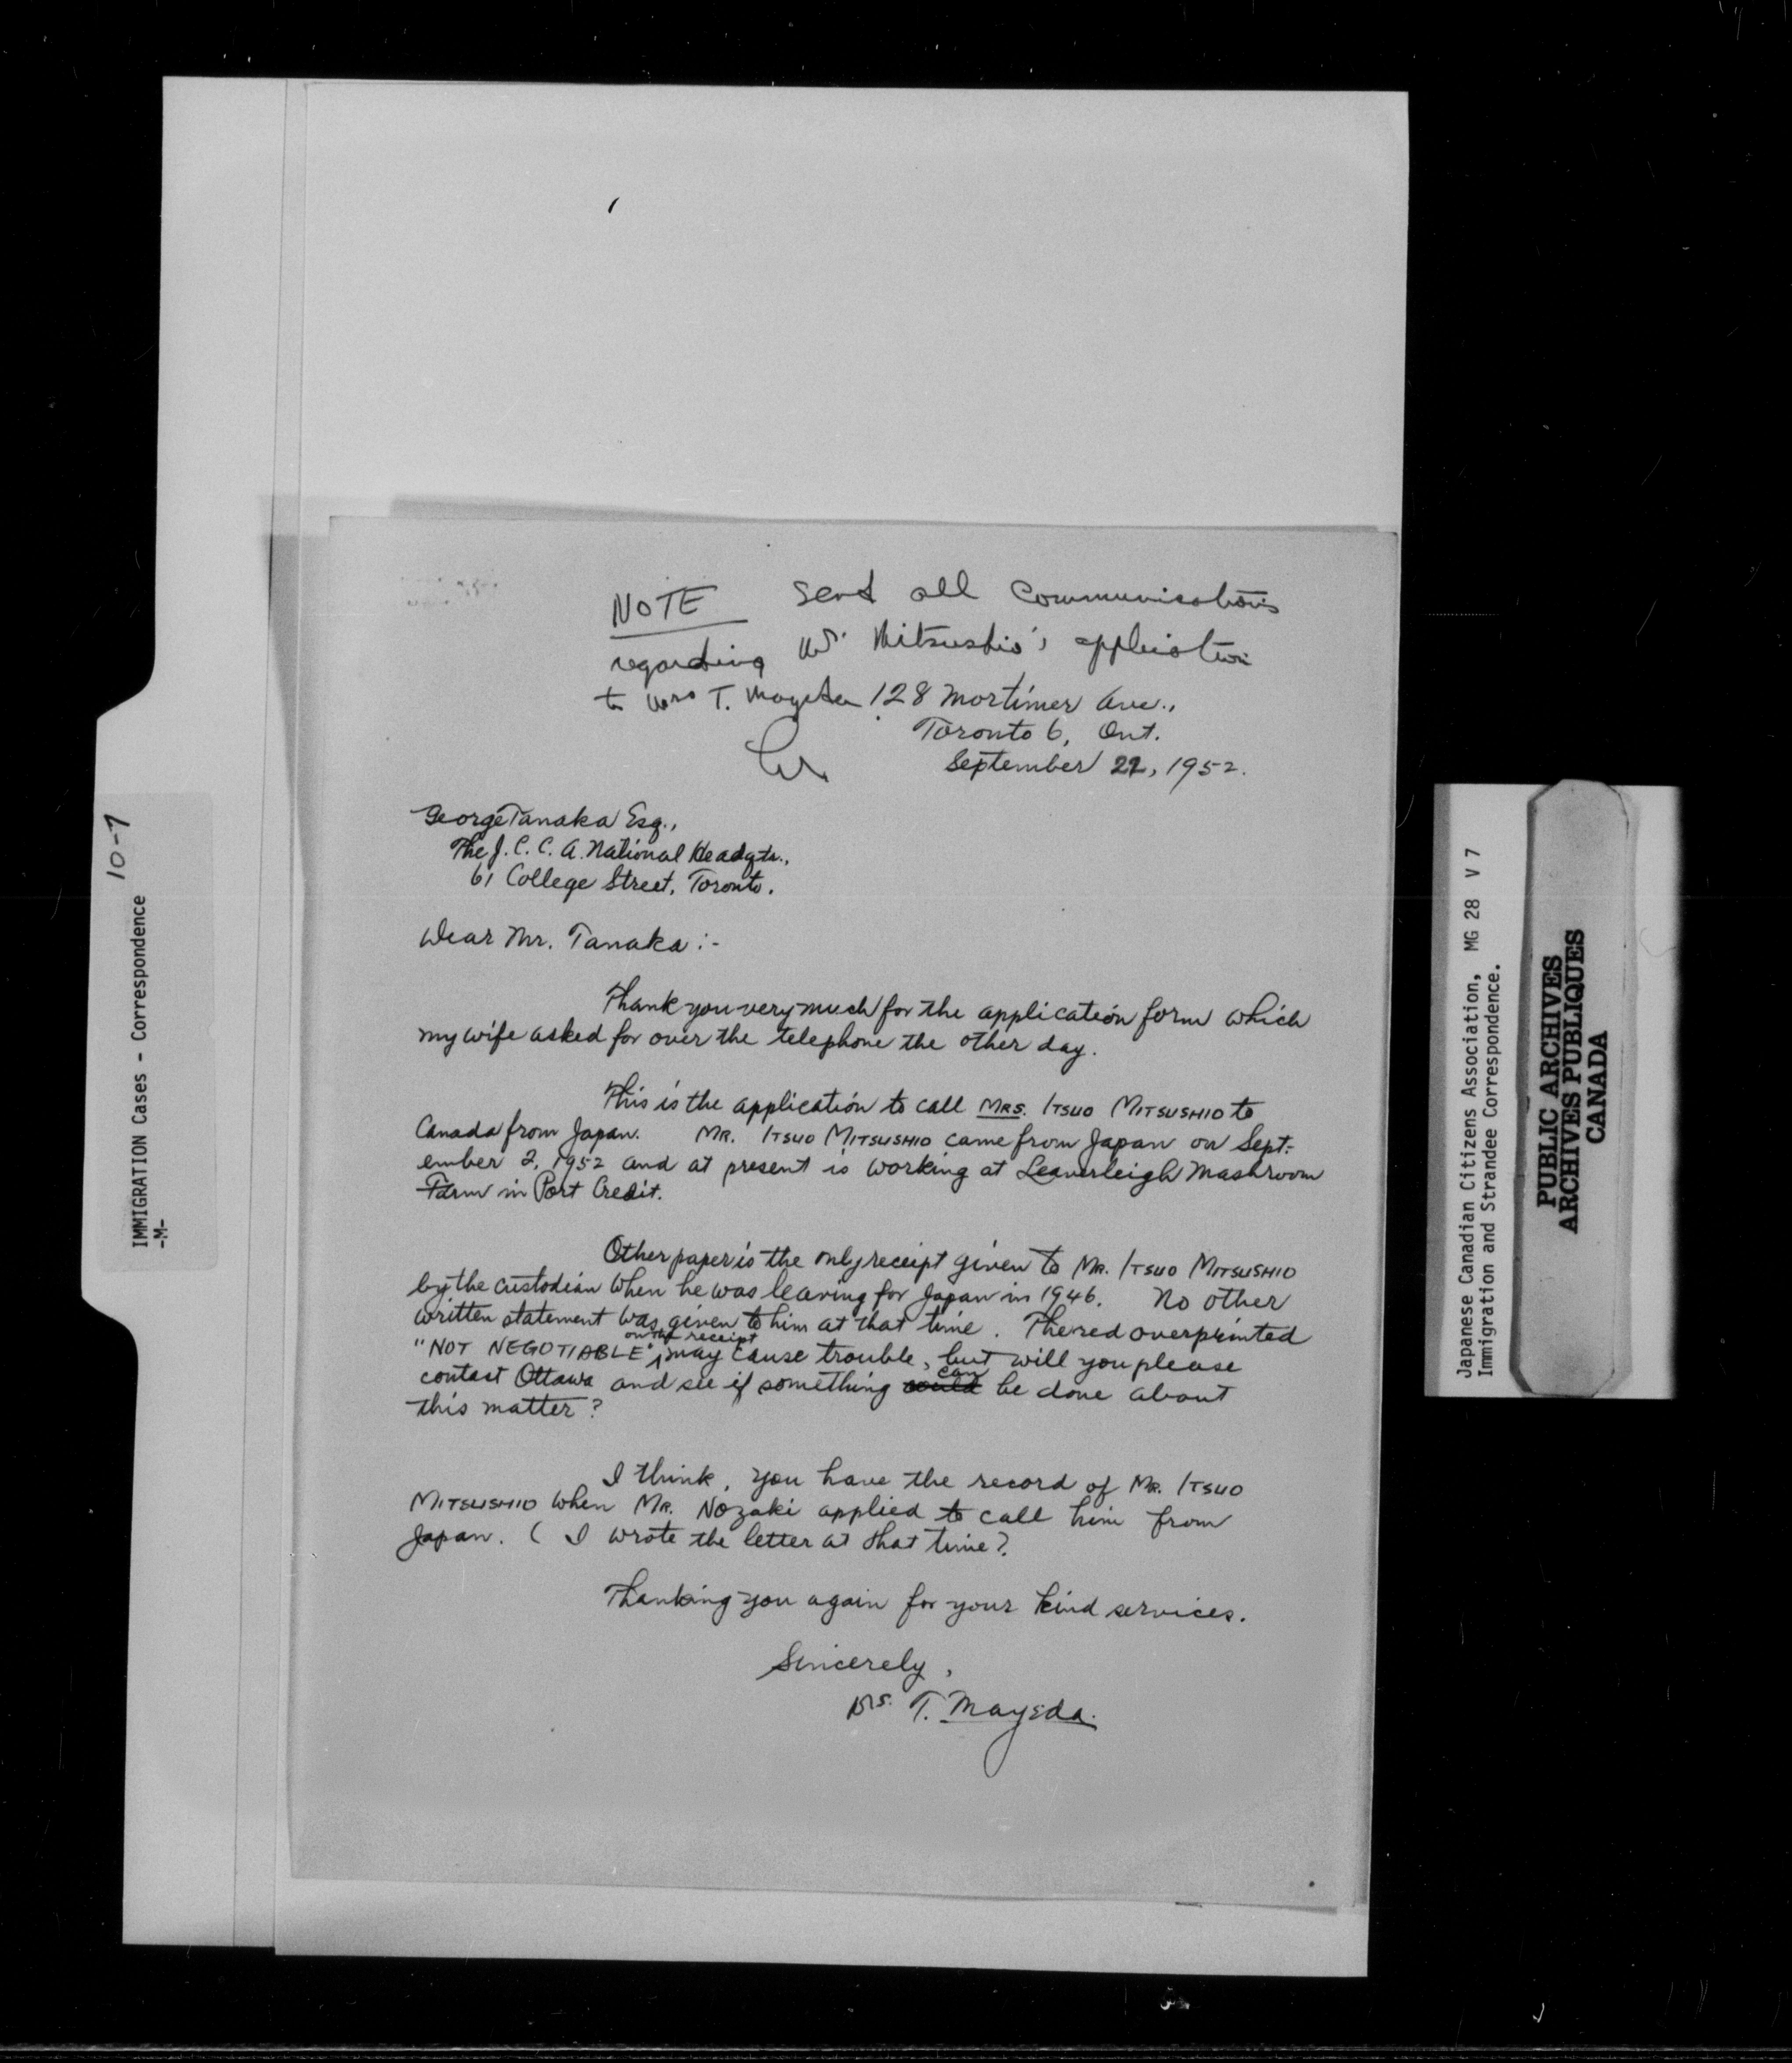 NOTE Send all Communications
regarding Mr. Mitsushio's application
to Mrs T. Mayeda 128 Mortimer Ave.,
Toronto 6, Ont.
September 22, 1952.
George Tanaka Esq.,
The J. C. C. A. National Headqts.,
61 College Street, Toronto.
Dear Mr. Tanaka :-
Thank you very much for the application form which
my wife asked for over the telephone the other day.
This is the application to call MRS. ITSUO MITSUSHIO to
Canada from Japan. MR. ITSUO MITSUSHIO came from Japan on Sept-
ember 2, 1952 and at present is working at Leaverleigh Mashroom
Farm in Port Credit.
Other paper is the only receipt given to MR. ITSUO MITSUSHIO
by the custodian when he was leaving for Japan in 1946. No other
written statement was given to him at that time. The red overprinted
on the receipt
"NOT NEGOTIABLE" may cause trouble, but will you please
can
contact Ottawa and see if something could be done about
this matter?
I think, you have the record of MR. ITSUO
MITSUSHIO when MR. Nozaki applied to call him from
Japan. ( I wrote the letter at that time).
Thanking you again for your kind services.
Sincerely,
T. Mayeda.
IMMIGRATION Cases - Correspondence 10-7
-M-
Japanese Canadian Citizens Association, MG 28 V 7
Immigration and Strandee Correspondence.
PUBLIC ARCHIVES
ARCHIVES PUBLIQUES
CANADA